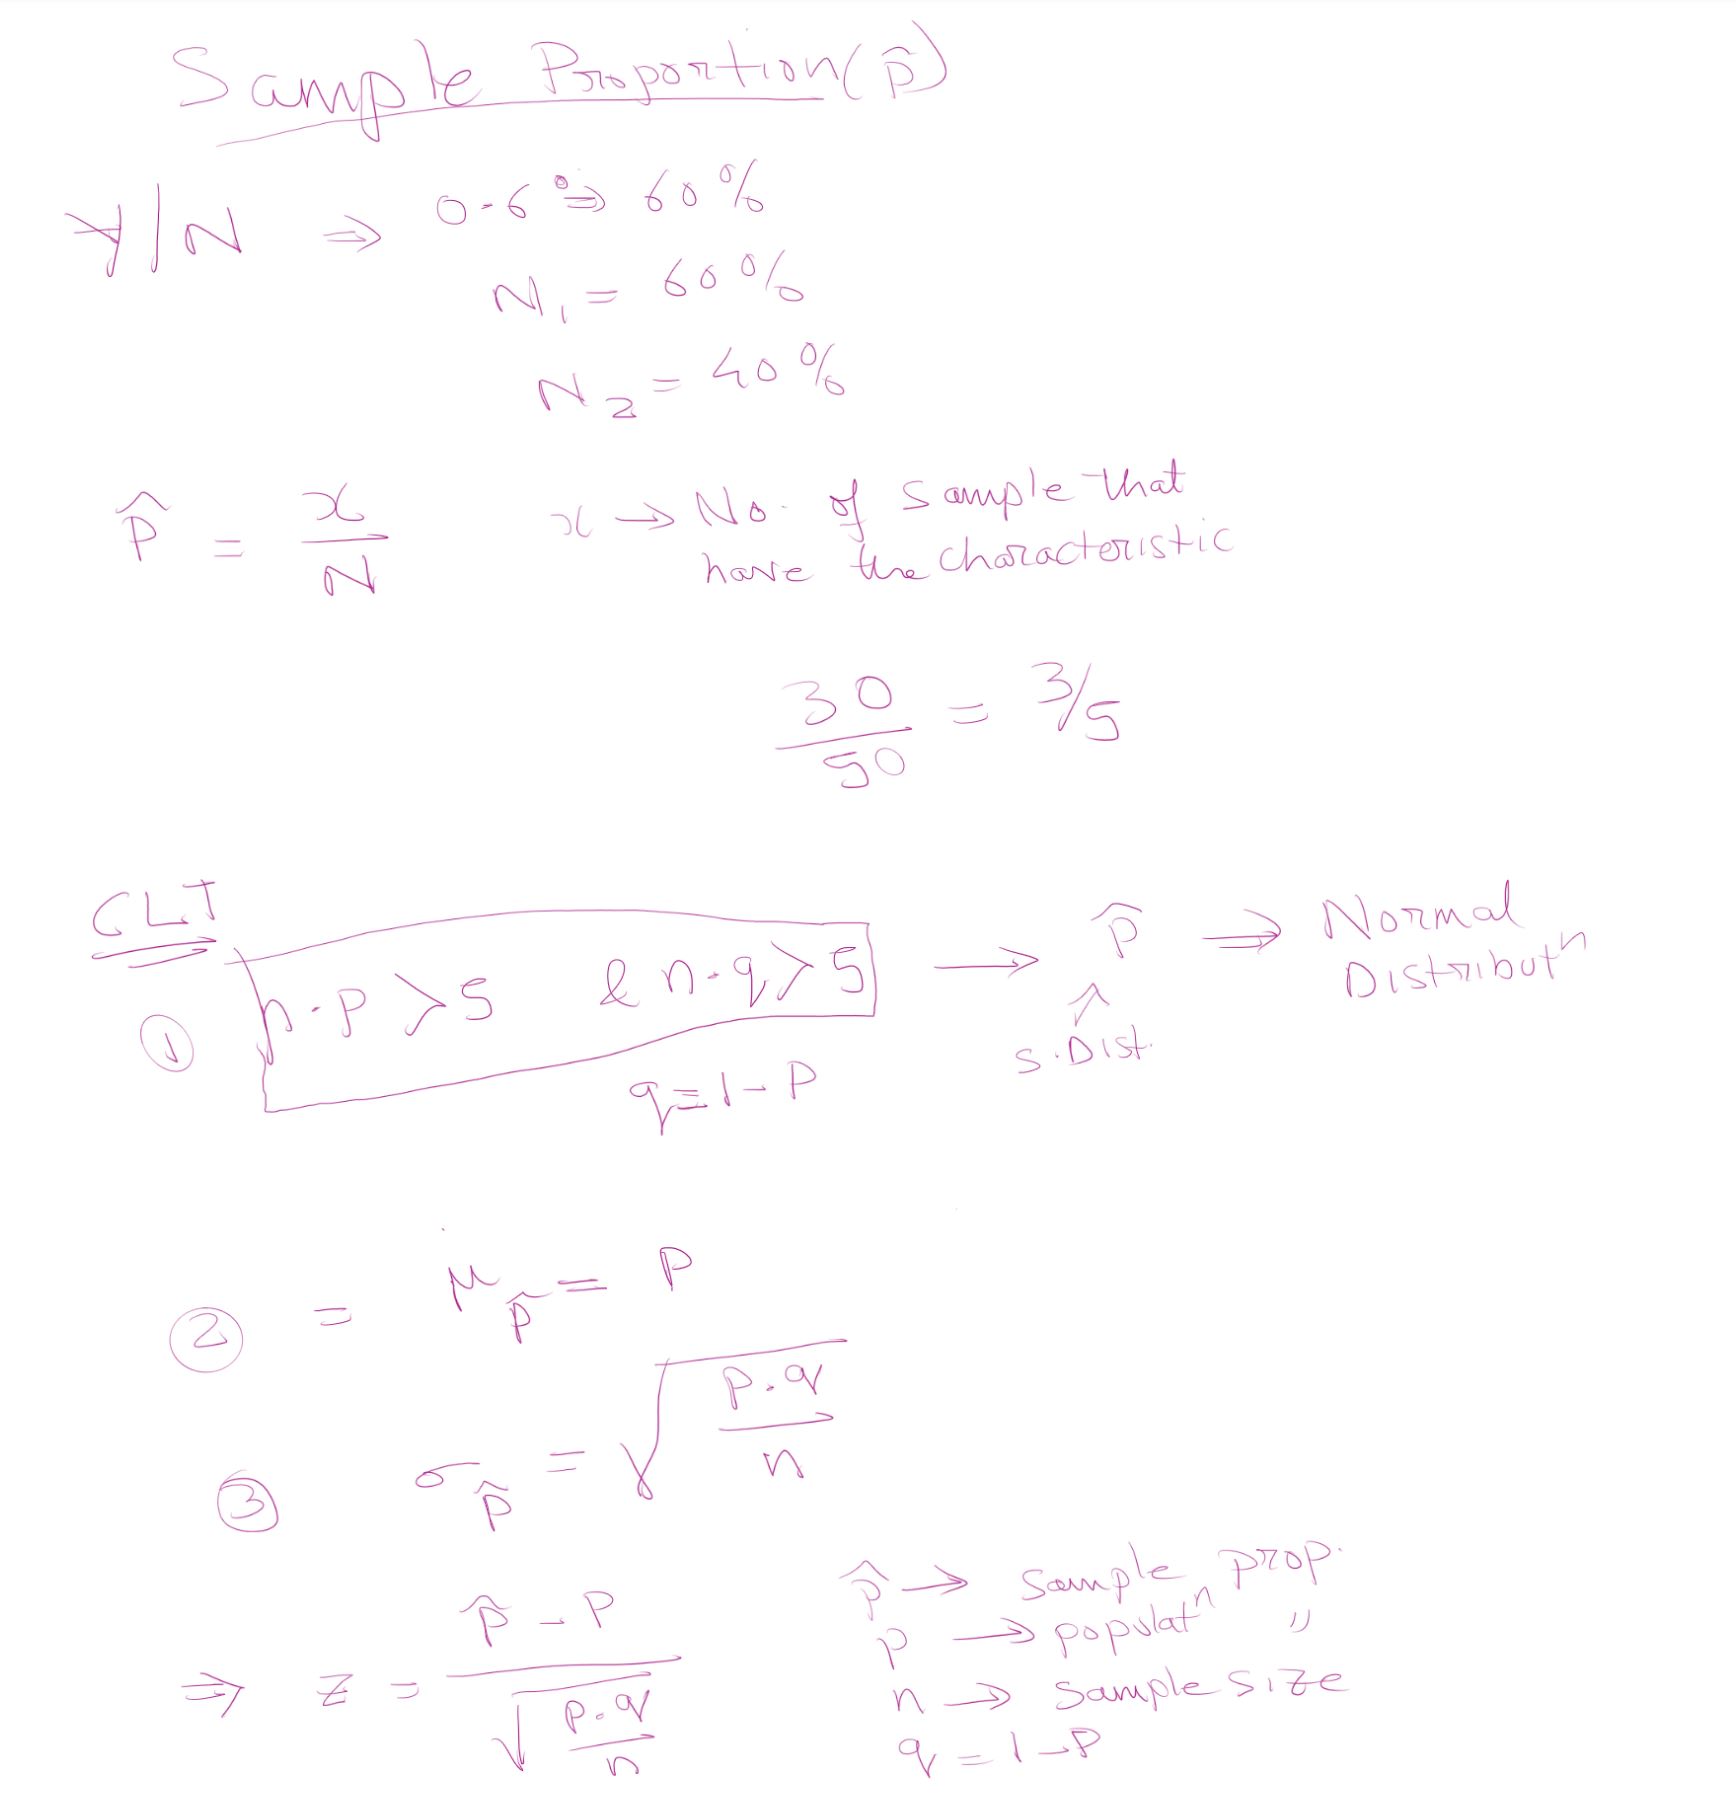 Sample Proportion (p̂)
Y/N ⇒ 0.6 ⇒ 60%
N₁ = 60%
N₂ = 40%
p̂ = x/N x → No. of sample that
have the characteristic
30/50 = 3/5
CLT
① n·p > 5 & n·q > 5 → p̂ ⇒ Normal
Distributⁿ
↑
S. Dist.
q = 1 - P
② = μp̂ = P
③ σp̂ = √(p·q/n)
⇒ z = (p̂ - P)/√(p·q/n)
p̂ → Sample prop.
p → populatⁿ "
n → sample size
q = 1 - P